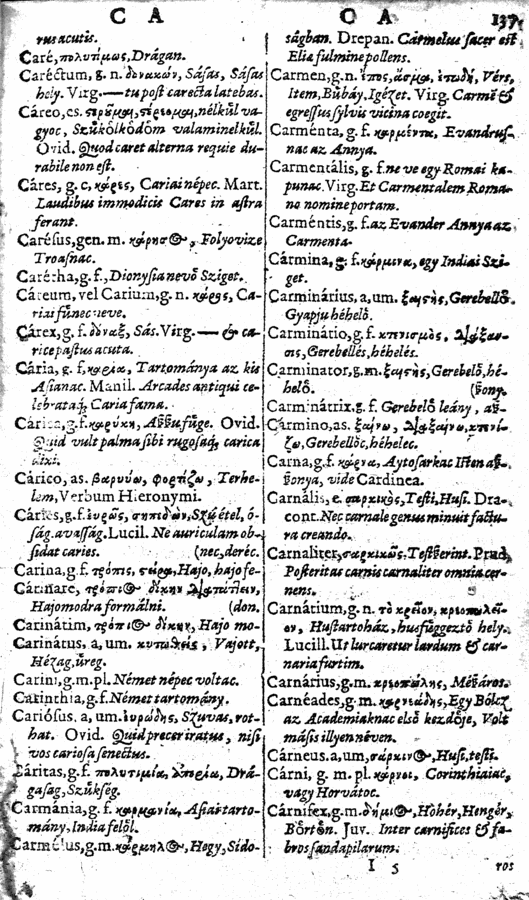 C A
rus acutis.
Caré, πολυτίμως, Drágan.
Caréctum, g. n. δονακών, Sásas, Sásas
hely. Virg. — tu post carecta latebas.
Cáreo, es. nélkül va-
gyoc, Szűkölködöm valaminelkűl.
Ovid. Quod caret alterna requie du-
rabile non est.
Cáres, g. c. κάρες, Cariai népec. Mart.
Laudibus immodicis Cares in astra
ferant.
Carésus, gen. m. Folyovize
Troasnac.
Caréthа, g. f., Dionysia nevő Sziget.
Cáreum, vel Carium, g. n. κάρος, Ca-
riai fűnec neve.
Cárex, g. f. δόναξ, Sás. Virg. — & ca-
rice pastus acuta.
Cária, g. f. καρία, Tartománya az kis
Asianac. Manil. Arcades antiqui ce-
lebrataq́; Caria fama.
Cárica, g. f. καρύκη, fűge. Ovid.
Quid vult palma sibi rugosaq́; carica
dixi.
Cárico, as. βαρύνω, φορτίζω, Terhe-
lem, Verbum Hieronymi.
Cáries, g. f. εὐρῶς, σηπεδὼν, Szúétel, ó-
ság, avasság. Lucil. Ne auriculam ob-
sidat caries. (nec, deréc.
Carina, g. f. τρόπις, Hajo, hajo fe-
Cárinare, δίκην
Hajomodra formálni. (don.
Carinátim, δίκην, Hajo mo-
Carinátus, a, um. Vajott,
Hézag, űreg.
Carini, g. m. pl. Német népec voltac.
Carinthia, g. f. Német tartomány.
Cariósus, a, um. εὐρώδης, Szuvas, rot-
hat. Ovid. Quid precer iratus, nisi
vos cariosa senectus.
Cáritas, g. f. πολυτιμία, Drá-
gaság, Szűkség.
Carmánia, g. f. καρμανία, Asiai tarto-
mány, India felől.
Carmélus, g. m. Hegy, Sido-
C A 137
ságban. Drepan. Carmelus sacer est
Eliæ fulmine pollens.
Carmen, g. n. ἔπος, ἆσμα, ἐπωδὴ, Vérs,
Item, Bűbáy, Igézet. Virg. Carmē &
egressus sylvis vicina coegit.
Carménta, g. f. καρμέντα, Evandrus-
nac az Annya.
Carmentális, g. f. neve egy Romai ka-
punac. Virg. Et Carmentalem Roma-
no nomine portam.
Carméntis, g. f. az Evander Annya az
Carmenta.
Cármina, g. f. κάρμινα, egy Indiai Szi-
get.
Carminárius, a, um. Gerebellő.
Gyapju héhelő.
Carminátio, g. f. κτενισμὸς,
Gerebellés, héhelés.
Carminator, g. m. Gerebelő, hé-
helő.
Carminátrix, g. f. Gerebelő leány,
Cármino, as. ξαίνω,
Gerebellőc, héhelec.
Carna, g. f. κάρνα, Aytosarkac Isten
vide Cardinea.
Carnális, e. σαρκικὸς, Testi, Husi. Dra-
cont. Nec carnale genus minuit factu-
ra creando.
Carnaliter, σαρκικῶς, Prud.
Posteritas carnis carnaliter omnia cer-
nens.
Carnátium, g. n. τὸ κρεῖον,
Hustartoház, husfűggeztő hely.
Lucill. Ut lurcaretur lardum & car-
naria furtim.
Carnárius, g. m. Mészáros.
Carnéades, g. m. καρνεάδης, Egy Bőlcz
az Academiaknac első kezdője, Volt
másis illyen néven.
Cárneus, a, um, Husi, testi.
Cárni, g. m. pl. κάρνοι, Corinthiaiac,
vagy Horvátoc.
Cárnifex, g. m. Hóhér, Hengér,
Juv. Inter carnifices & fa-
bros sandapilarum.
I 5
ros